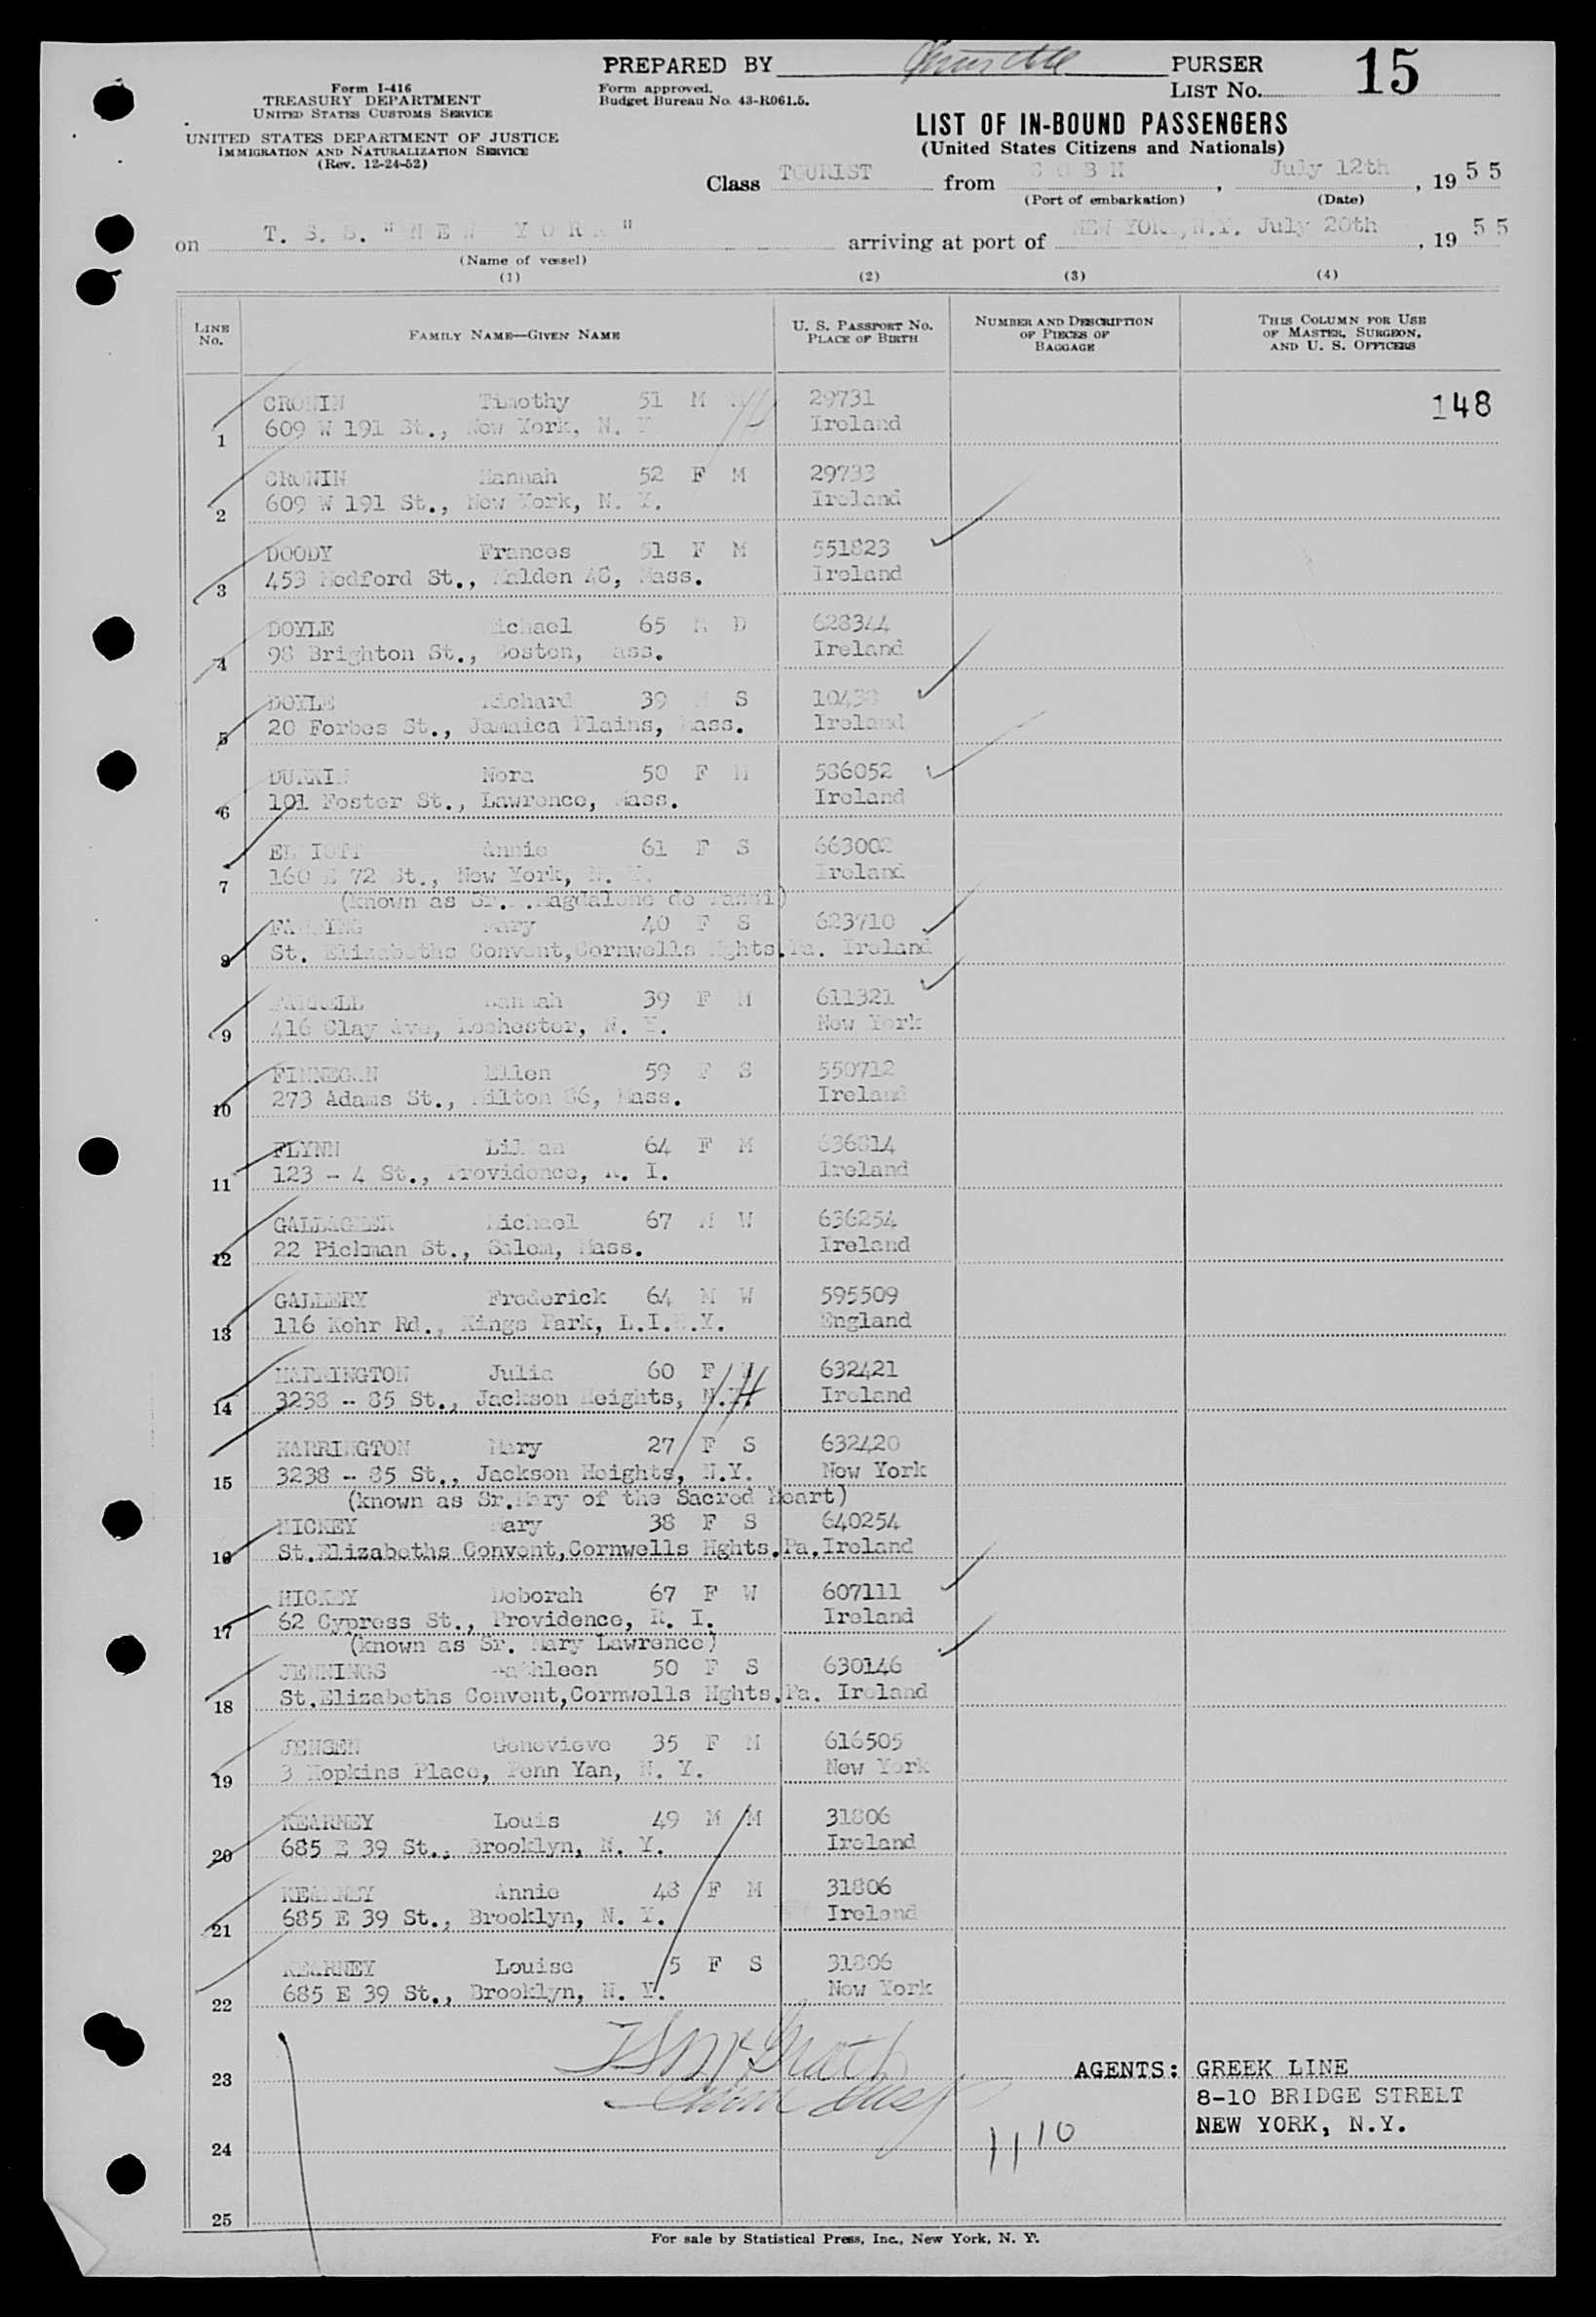 PREPARED BY PURSER
Form I-416
TREASURY DEPARTMENT
UNITED STATES CUSTOMS SERVICE
UNITED STATES DEPARTMENT OF JUSTICE
IMMIGRATION AND NATURALIZATION SERVICE
(Rev. 12-24-52)
Form approved.
Budget Bureau No. 43-R061.5.
LIST No. 15
LIST OF IN-BOUND PASSENGERS
(United States Citizens and Nationals)
Class TOURIST from C O B H, July 12th, 19 5 5
(Port of embarkation) (Date)
on T. S. S. "N E W Y O R K" arriving at port of NEW YORK, N.Y. July 20th, 19 5 5
(Name of vessel)
(1) (2) (3) (4)
LINE No. FAMILY NAME—GIVEN NAME U. S. PASSPORT No. PLACE OF BIRTH NUMBER AND DESCRIPTION OF PIECES OF BAGGAGE THIS COLUMN FOR USE OF MASTER, SURGEON, AND U. S. OFFICERS
CRONIN Timothy 51 M M 29731 148
1 609 W 191 St., New York, N. Y. Ireland
CRONIN Hannah 52 F M 29733
2 609 W 191 St., New York, N. Y. Ireland
DOODY Frances 51 F M 551823
3 453 Medford St., Malden 48, Mass. Ireland
DOYLE Michael 65 M D 628344
4 98 Brighton St., Boston, Mass. Ireland
DOYLE Richard 39 M S 10438
5 20 Forbes St., Jamaica Plains, Mass. Ireland
DURKIN Nora 50 F M 586052
6 101 Foster St., Lawrence, Mass. Ireland
ELLIOTT Annie 61 F S 663002
7 160 E 72 St., New York, N. Y. Ireland
(known as Sr. Magdalene de Pazzi)
FANNING Mary 40 F S 623710
8 St. Elizabeths Convent,Cornwells Hghts.Pa. Ireland
FARRELL Hannah 39 F M 611321
9 416 Clay Ave, Rochester, N. Y. New York
FINNEGAN Ellen 59 F S 550712
10 273 Adams St., Milton 86, Mass. Ireland
FLYNN Lilian 64 F M 636814
11 123 - 4 St., Providence, R. I. Ireland
GALLAGHER Michael 67 M W 636254
12 22 Pickman St., Salem, Mass. Ireland
GALLERY Frederick 64 M W 595509
13 116 Kohr Rd., Kings Park, L.I.N.Y. England
HARRINGTON Julia 60 F M 632421
14 3238 - 85 St., Jackson Heights, N.Y. Ireland
HARRINGTON Mary 27 F S 632420
15 3238 - 85 St., Jackson Heights, N.Y. New York
(known as Sr.Mary of the Sacred Heart)
HICKEY Mary 38 F S 640254
16 St.Elizabeths Convent,Cornwells Hghts.Pa.Ireland
HICKEY Deborah 67 F W 607111
17 62 Cypress St., Providence, R. I. Ireland
(known as Sr. Mary Lawrence)
JENNINGS Kathleen 50 F S 630146
18 St.Elizabeths Convent,Cornwells Hghts.Pa. Ireland
JENSEN Genevieve 35 F M 616505
19 3 Hopkins Place, Penn Yan, N. Y. New York
KEARNEY Louis 49 M M 31806
20 685 E 39 St., Brooklyn, N. Y. Ireland
KEARNEY Annie 48 F M 31806
21 685 E 39 St., Brooklyn, N. Y. Ireland
KEARNEY Louise 5 F S 31806
22 685 E 39 St., Brooklyn, N. Y. New York
23 AGENTS: GREEK LINE
8-10 BRIDGE STREET
24 11 10 NEW YORK, N.Y.
25
For sale by Statistical Press, Inc., New York, N. Y.